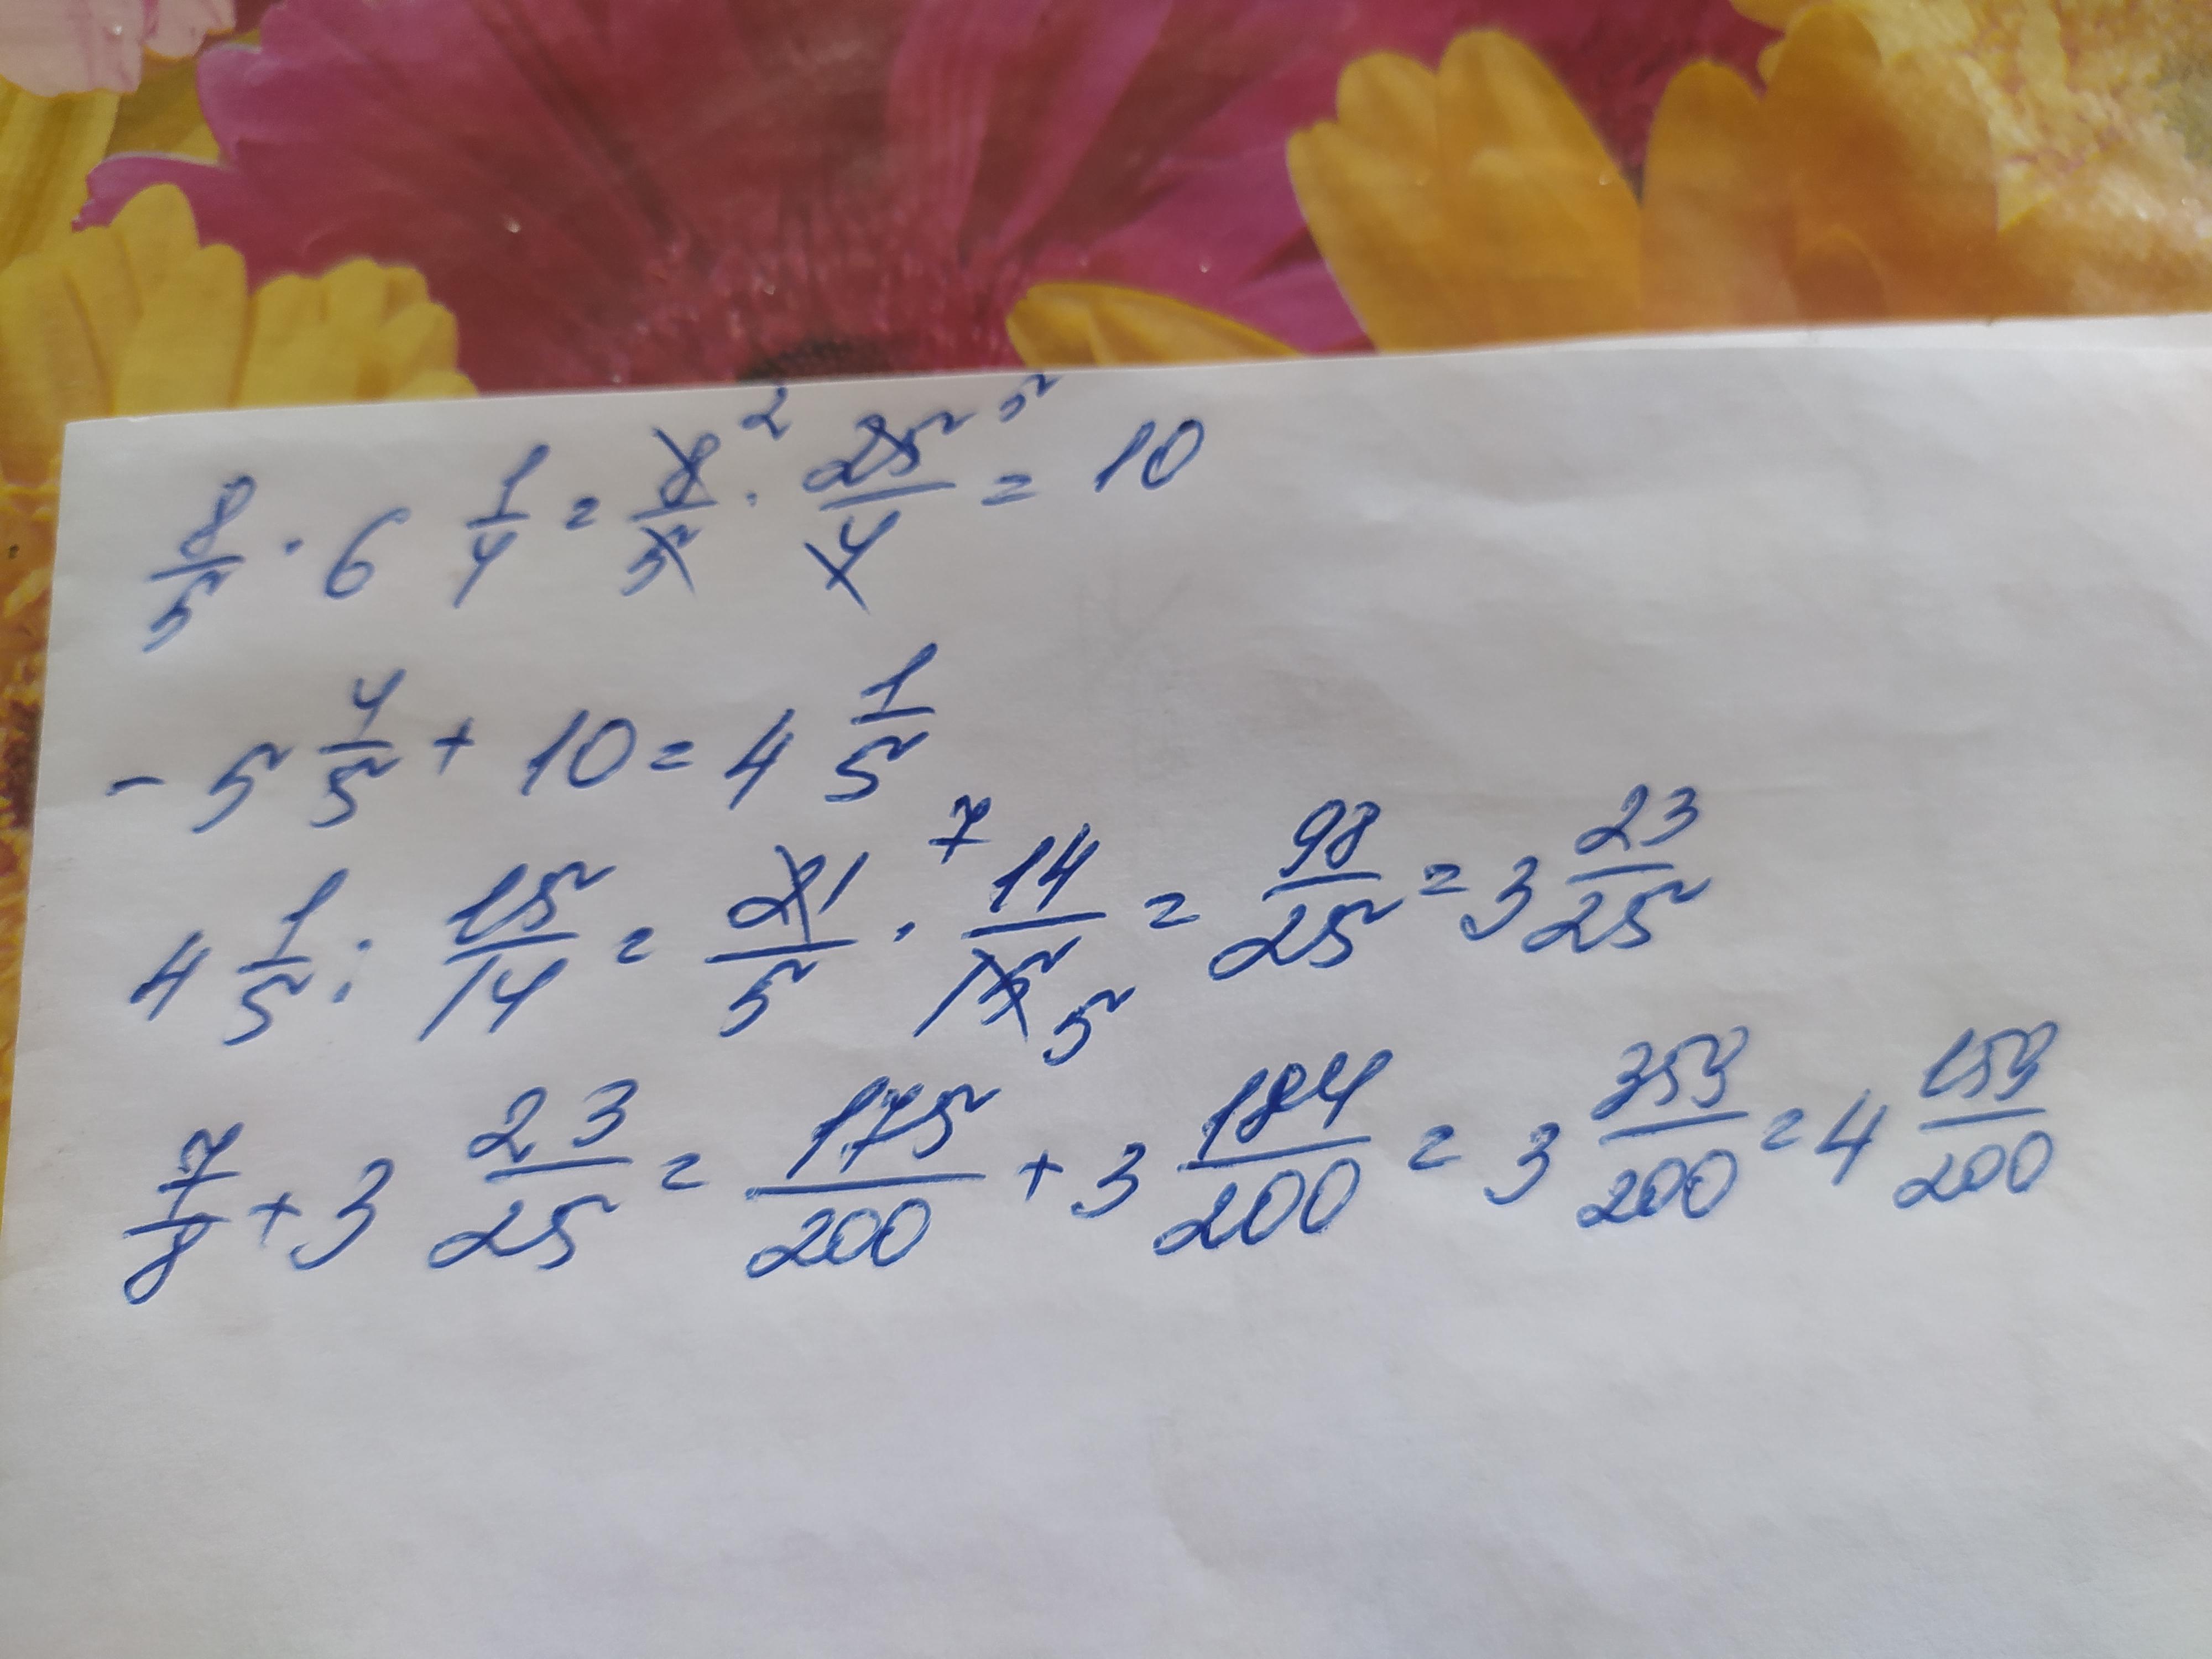 8/5 · 6 1/4 = 8/5 2 · 25/4 5 = 10
- 5 4/5 + 10 = 4 1/5
4 1/5 : 15/14 = 21/5 7 · 14/15 5 = 98/25 = 3 23/25
7/8 + 3 23/25 = 175/200 + 3 184/200 = 3 359/200 = 4 159/200